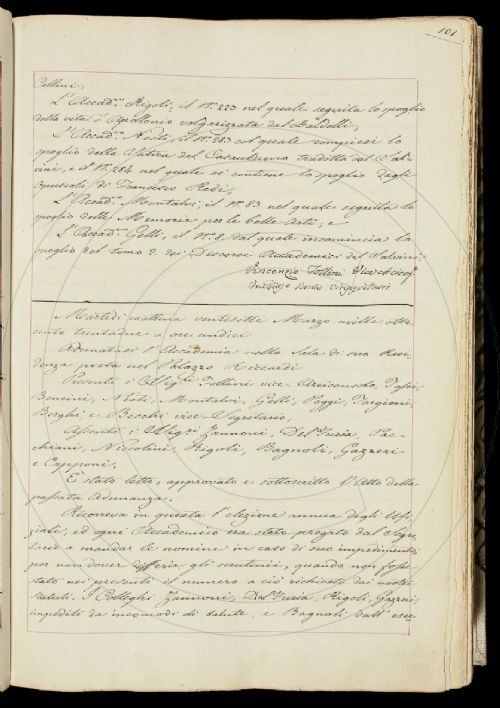 101
Cellini;
L'Accad.co Rigoli, il N.º 223 nel quale seguita lo spoglio
della vita d'Apollonio volgarizzata dal Baldelli;
L'Accad.co Nesti, il N.º 383 col quale compiesi lo
spoglio della Satira del Casaubono tradotta dal Sal-
vini, e il N.º 284 nel quale si contiene lo spoglio degli
Opuscoli di Francesco Redi;
L'Accad.co Montalvi, il N.º 83 nel quale seguita lo
spoglio delle Memorie per le belle Arti; e
L'Accad.co Gelli, il N.º 8 dal quale incomincia lo
spoglio del tomo 2. dei Discorsi Accademici del Salvini.
Vincenzio Follini Vice Arcicof.
Becchi Vicesegretario
Martedì mattina ventisette Marzo mille otto-
cento trentadue a ore undici
Adunatasi l'Accademia nella Sala di sua Resi-
denza posta nel Palazzo Riccardi
Presenti i Sig.ri Follini vice-Arciconsolo, Fossi,
Bencini, Nesti, Montalvi, Gelli, Poggi, Targioni,
Borghi e Becchi vice-Segretario,
Assenti i Sig.ri Zannoni, Del Furia, Pac-
chiani, Niccolini, Rigoli, Bagnoli, Gazzeri
e Capponi.
È stato letto, approvato e sottoscritto l'Atto della
passata Adunanza.
Ricorreva in questa l'elezione annua degli Uffi-
ziali, ed ogni Accademico era stato pregato dal Segre-
tario a mandar le nomine in caso di suo impedimento,
per non dover differir gli scrutinii, quando non fosse
stato nei presenti il numero a ciò richiesto dai nostri
statuti. I Colleghi Zannoni, Del Furia, Rigoli, Gazzeri,
impediti da incomodi di salute, e Bagnoli dall'esser